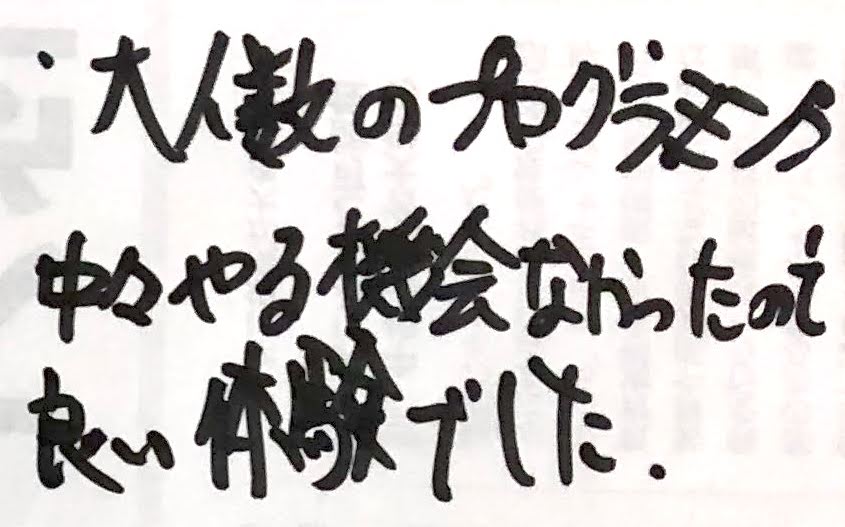 ・大人数のプログラミング
中々やる機会なかったので
良い体験でした.